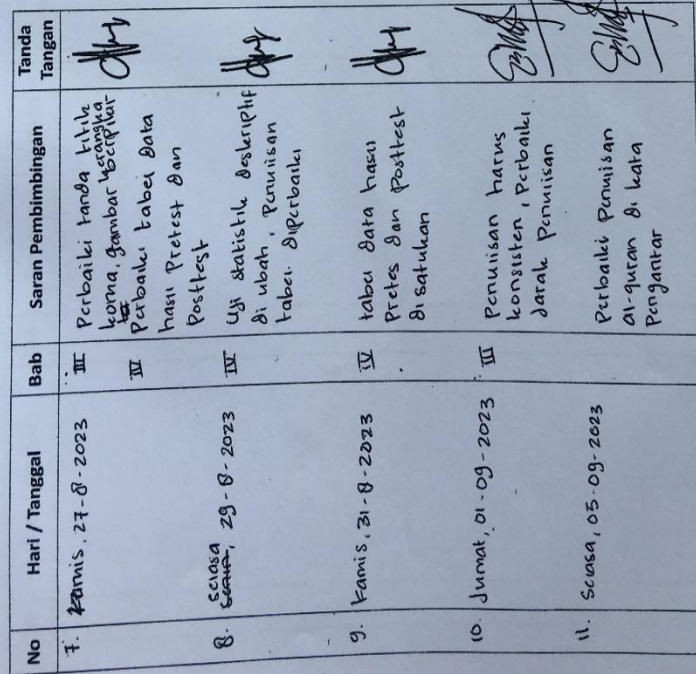 No Hari / Tanggal Bab Saran Pembimbingan Tanda Tangan
7. Kamis, 27-8-2023 III Perbaiki tanda titik
koma, gambar kerangka berpikir
IV Perbaiki tabel data
hasil Pretest dan
Posttest
8. selasa, 29-8-2023 IV Uji statistik deskriptif
di ubah, Penulisan
tabel diperbaiki
9. Kamis, 31-8-2023 IV tabel data hasil
Pretes dan Posttest
disatukan
10. Jumat, 01-09-2023 III Penulisan harus
konsisten, Perbaiki
Jarak Penulisan
11. Selasa, 05-09-2023 Perbaiki Penulisan
al-quran di kata
Pengantar